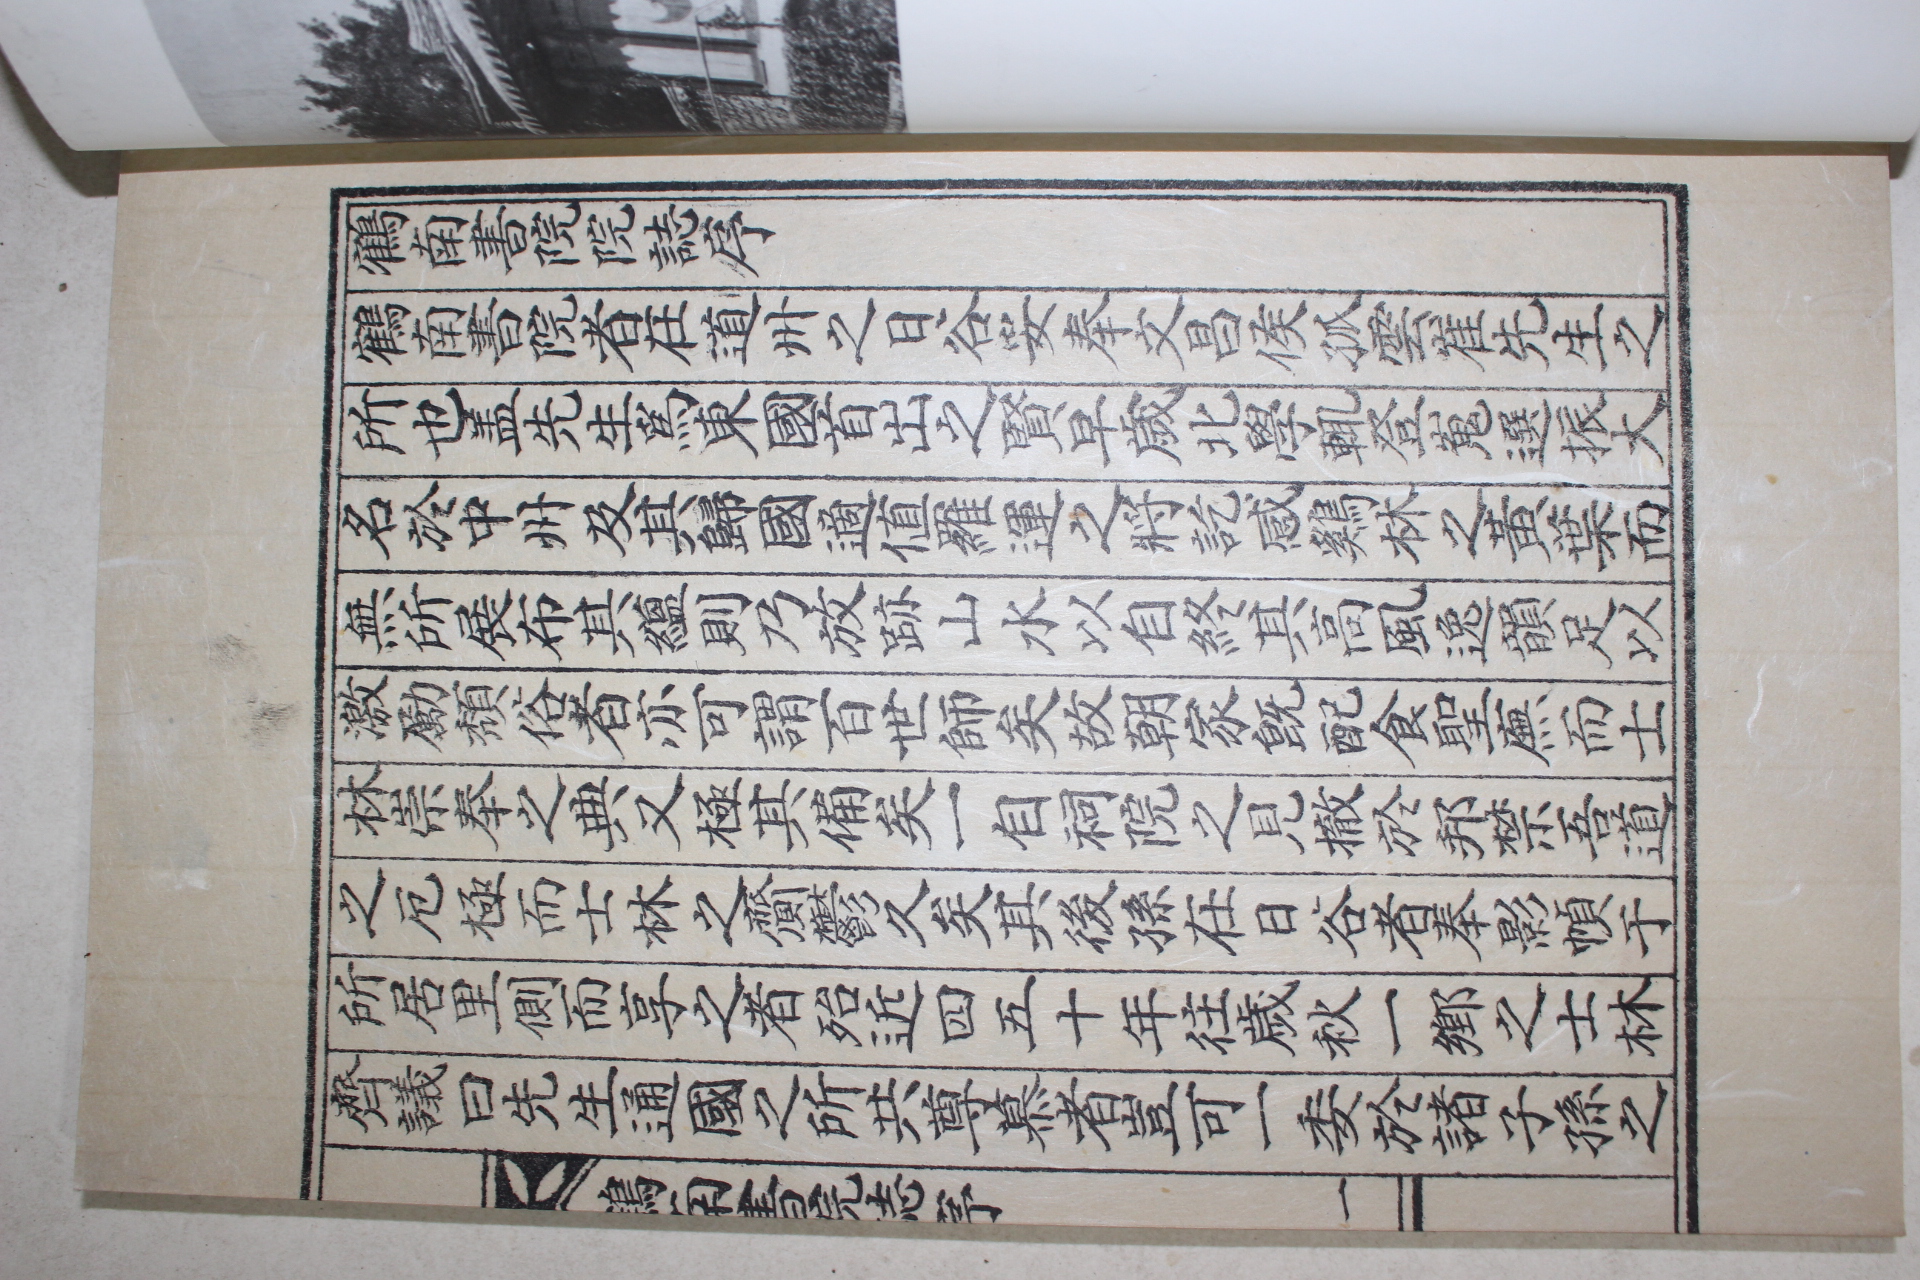 鶴南書院院誌序
鶴南書院者在道州之日谷安奉文昌侯孤雲崔先生之
所也盖先生爲東國首出之賢早歲北學輒登嵬選振大
名於中州及其歸國適値羅運之將訖感鷄林之黃葉而
無所展布其蘊則乃放跡山水以自終其高風逸韻足以
激勵頹俗者亦可謂百世師矣故朝家旣配食聖廡而士
林崇奉之典又極其備矣一自祠院之見撤於邦禁吾道
之厄極而士林之齎鬱久矣其後孫在日谷者奉影幀于
所居里側而享之者殆近四五十年往歲秋一鄕之士林
齊議曰先生通國之所共尊慕者豈可一委於諸子孫之
鶴南書院誌序 一